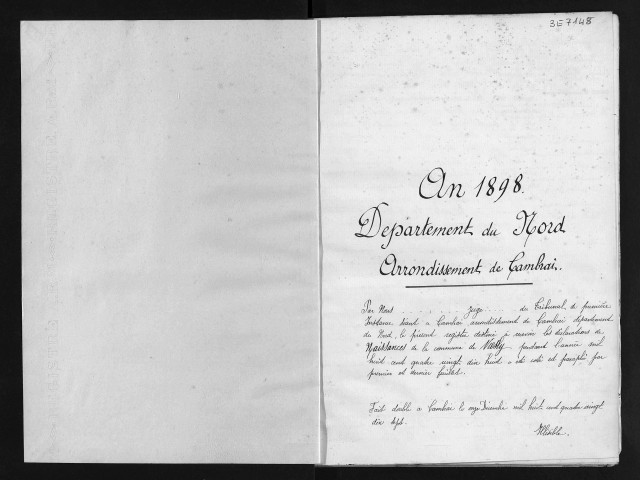 3E7148
An 1898.
Departement du Nord
Arrondissement de Cambrai.
Par Nous . . . . . . Juge . . . du Tribunal de première
Instance séant à Cambrai arrondissement de Cambrai département
du Nord, le présent registre destiné à recevoir les déclarations de
Naissances de la commune de pendant l'année mil
huit cent quatre vingt dix huit a été coté et paraphé par
premier et dernier feuillet.
Fait double à Cambrai le onze Décembre mil huit cent quatre vingt
dix sept.
Illisible.